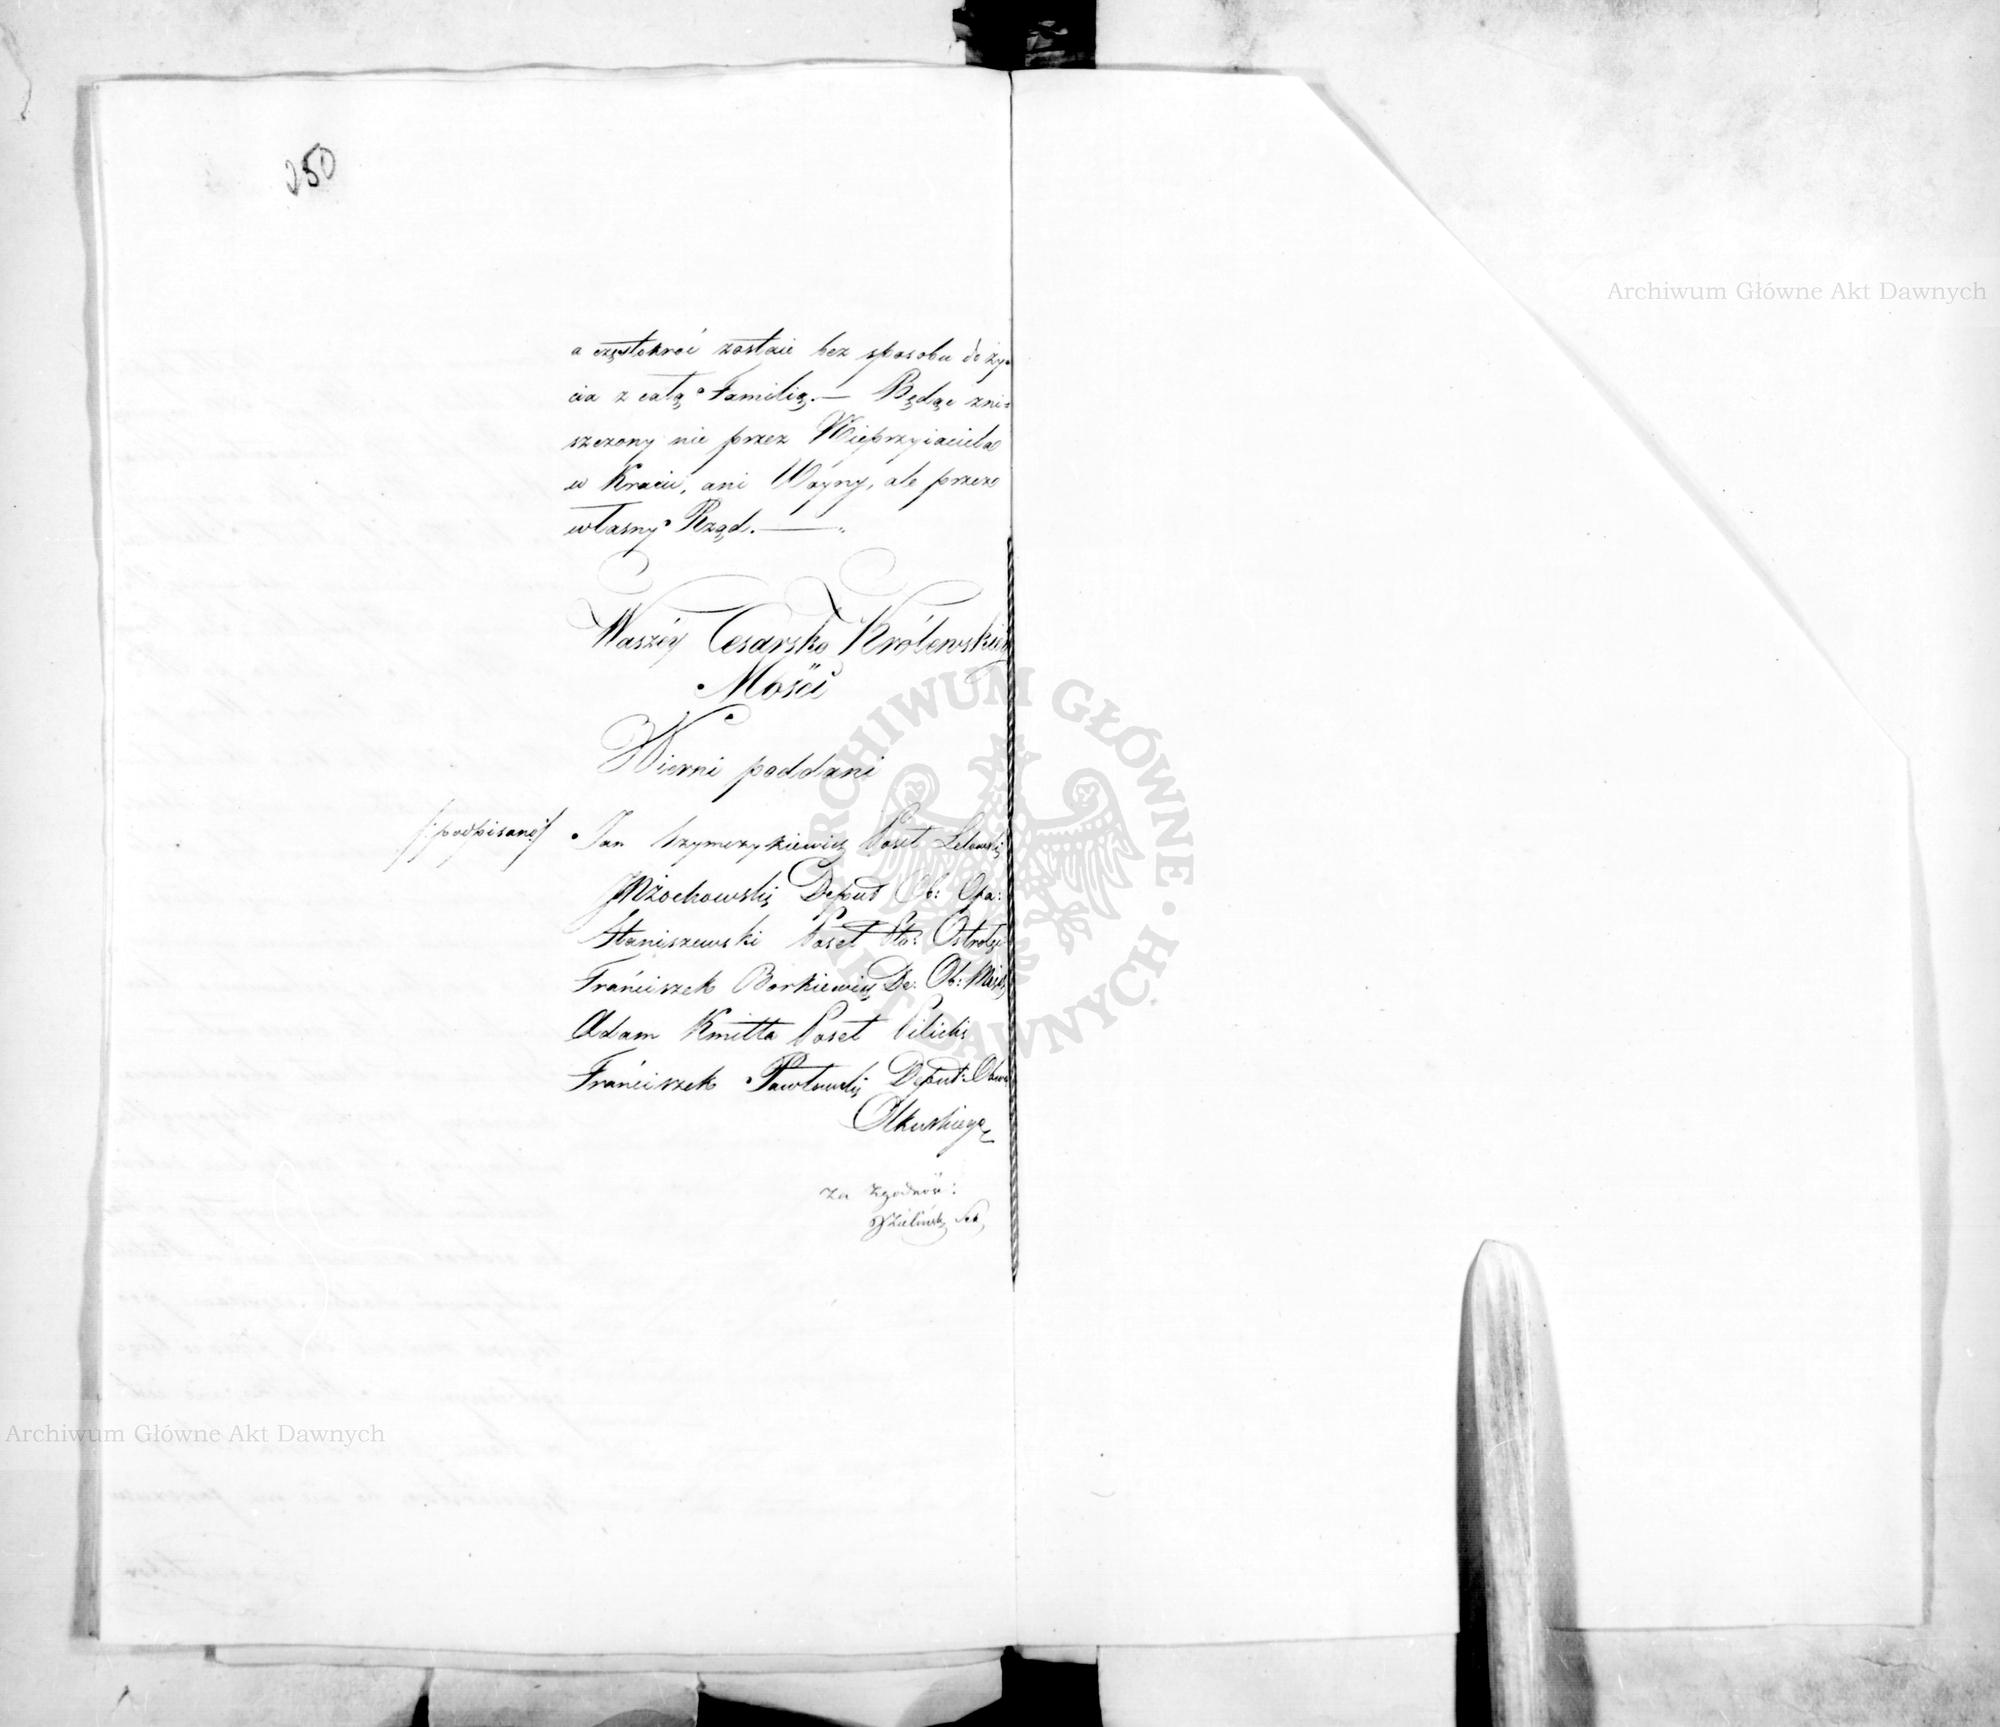 250
a częstokroć zostaie bez sposobu do ży=
cia z całą Familią.— Będąc zni=
szczony nie przez Nieprzyiaciela
w Kraiu, ani Woyny, ale przez
własny Rząd.—
Waszéy Cesarsko Królewskiey
Mości
Wierni poddani
/:podpisano:/ Jan Szymczykiewicz Poseł Lelowski
Wżochowski Deput Ob: Opa:
Staniszewski Poseł Sto: Ostrołę
Franciszek Borkiewicz De: Ob: Miń
Adam Kmitta Poseł Pilicki
Franciszek Pawłowski Deput: Obwo
Olkuskiego
Za zgodność:
Zieliński Sek
Archiwum Główne Akt Dawnych
Archiwum Główne Akt Dawnych
ARCHIWUM GŁÓWNE AKT DAWNYCH